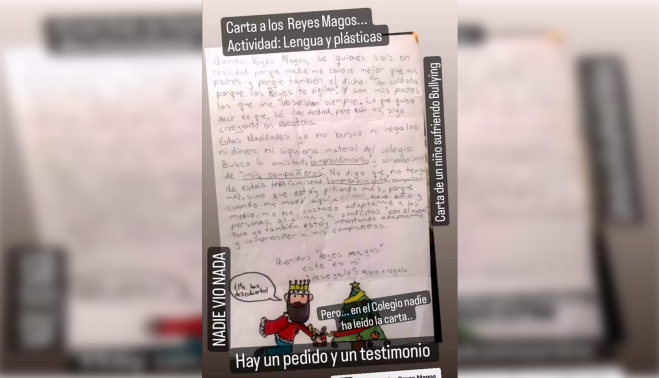 Carta a los Reyes Magos...
Actividad: Lengua y plásticas
Queridos Reyes Magos, se quienes sois en
realidad porque nadie me conoce mejor que mis
padres y porque también el dicho: "Ten cuidado
porque los Reyes te vigilan" Y son mis padres
los que me observan siempre. Lo que quiero
decir es que, sé la verdad, pero aún así, sigo
creyendo en vosotros.
Estas Navidades yo no busco ni regalos
ni dinero, ni siquiera material del colegio
Busco la amistad, y
de "mis compañeros". No digo que no tenga
de estas tres (amistad,
sino que estoy pidiendo más, porque
cuando me mudé aquí, hace año y
medio, me ha costado adaptarme a las
personas, al clima, a conflictos
Pero yo también estoy intentando adaptarme
y comprender a mis compañeros.
Queridos "Reyes magos"
este es mi
"deseo + regalo
¡Me has
descubierto!
Carta de un niño sufriendo Bullying
NADIE VIO NADA
Pero... en el Colegio nadie
ha leído la carta..
Hay un pedido y un testimonio
Reyes Magos